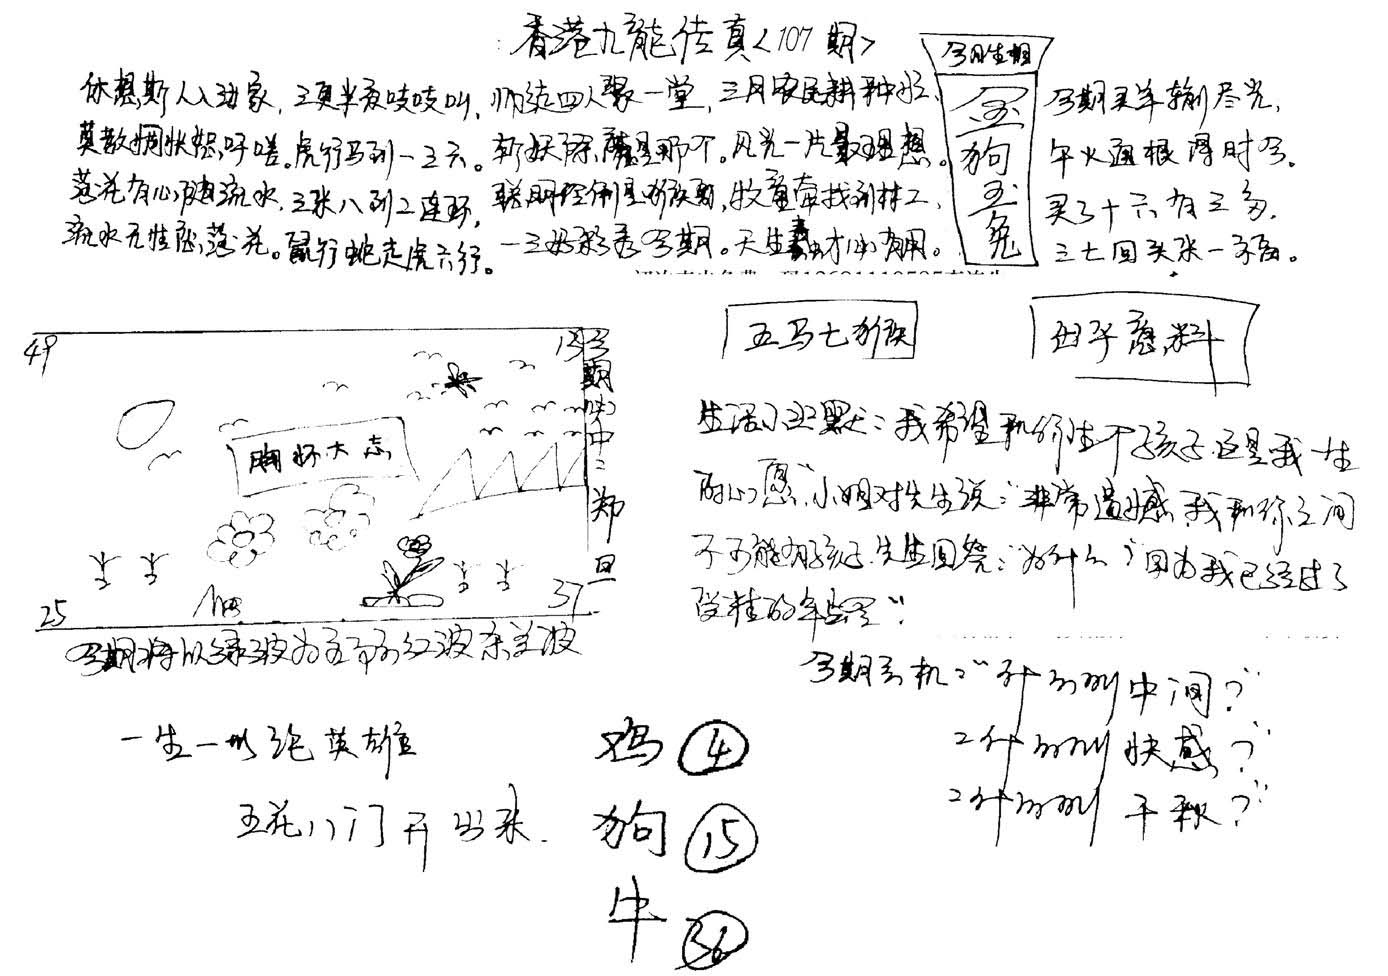 香港九龙传真<107期>
今日生相
金
狗
玉
兔
休想斯人入我家,三更半夜吱吱叫,
莫教惆怅怨吁嗟。虎行马到一三六。
落花有心随流水,三来八到二连环,
流水无情恋落花。鼠行蛇走虎六行。
师徒四人聚一堂,三月农民耕种忙,
斩妖除魔是那个。风光一片最理想。
聪明伶俐是猴哥,牧童牵找到村工,
一三母彩看今期。天生蠢才小有用。
今期买羊输尽光,
午火通根得时令。
买了十六有三多,
三七回头来一字图。
五马七猴
母子惹料
49
133
25
37
胸怀大志
今期供中:郑旦
今期将以绿波为主节的红波杂兰波
生活小幽默:我希望和你生个孩子,这是我一生
的心愿"小姐对先生说:"非常遗憾,我和你之间
不可能有孩子,先生回答:"为什么?"因为我已经过了
受精的年龄"
今期玄机:"什么叫中间?"
2什么叫快感?"
2什么叫千秋?"
一生一世绝英雄
五花八门开出来.
鸡 4
狗 15
牛 36